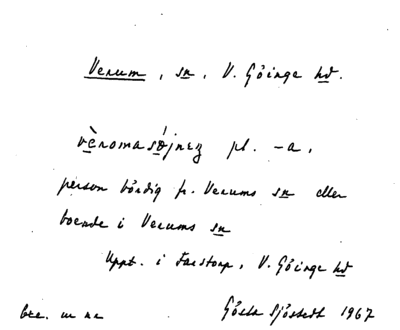 Verum, sn, V. Göinge hd.
pl. -a,
person bördig fr. Verums sn eller
boende i Verums sn
Uppt. i Farstorp, V. Göinge hd
Gösta Sjöstedt 1967